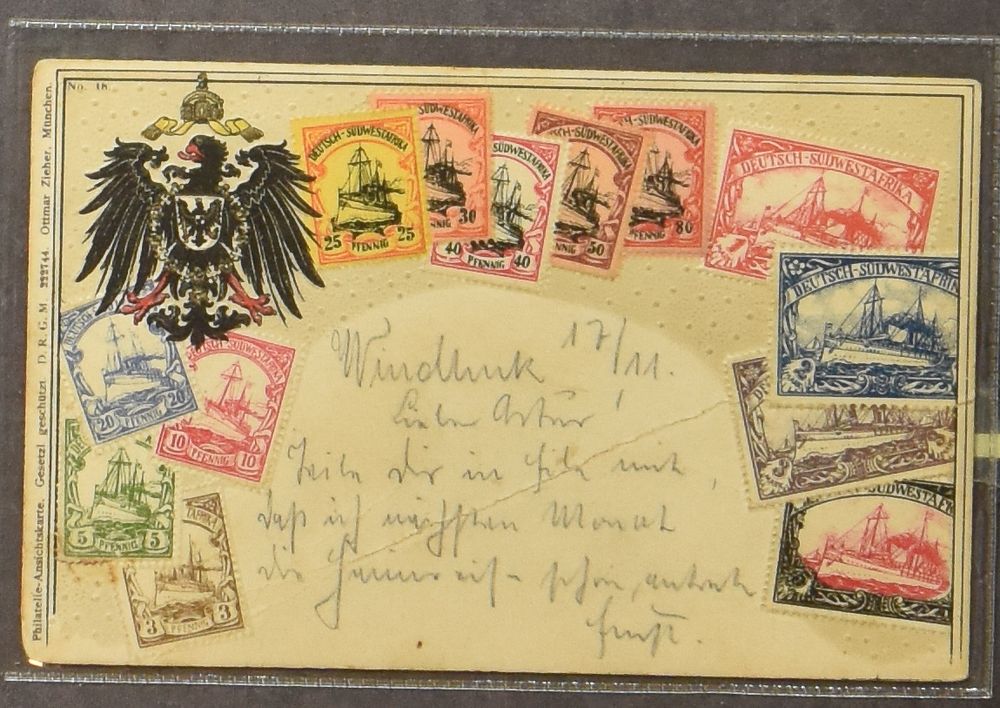 No. 18
Philatelie-Ansichtskarte. Gesetzl. geschützt. D. R. G. M. 222744. Ottmar Zieher, München.
DEUTSCH-SÜDWESTAFRIKA
25 PFENNIG 25
SÜDWESTAFRIKA
NNIG 30
SÜDWESTAFRIKA
40 PFENNIG 40
CH-SÜDWESTAFRIKA
NNIG 50
SÜDWESTAFRIKA
PFENNIG 80
DEUTSCH-SÜDWESTAFRIKA
DEUTSCH-SÜDWESTAFRIK
20 PFENNIG 20
DEUTSCH-SÜDWESTAFRIKA
10 PFENNIG 10
5 PFENNIG 5
TAFRIKA
3 PFENNIG 3
SÜDWESTAFR
Windhuk 17/11.
Lieber Artur!
Teile Dir in Eile mit,
daß ich nächsten Monat
die Heimreise schon antrete
Ernst.